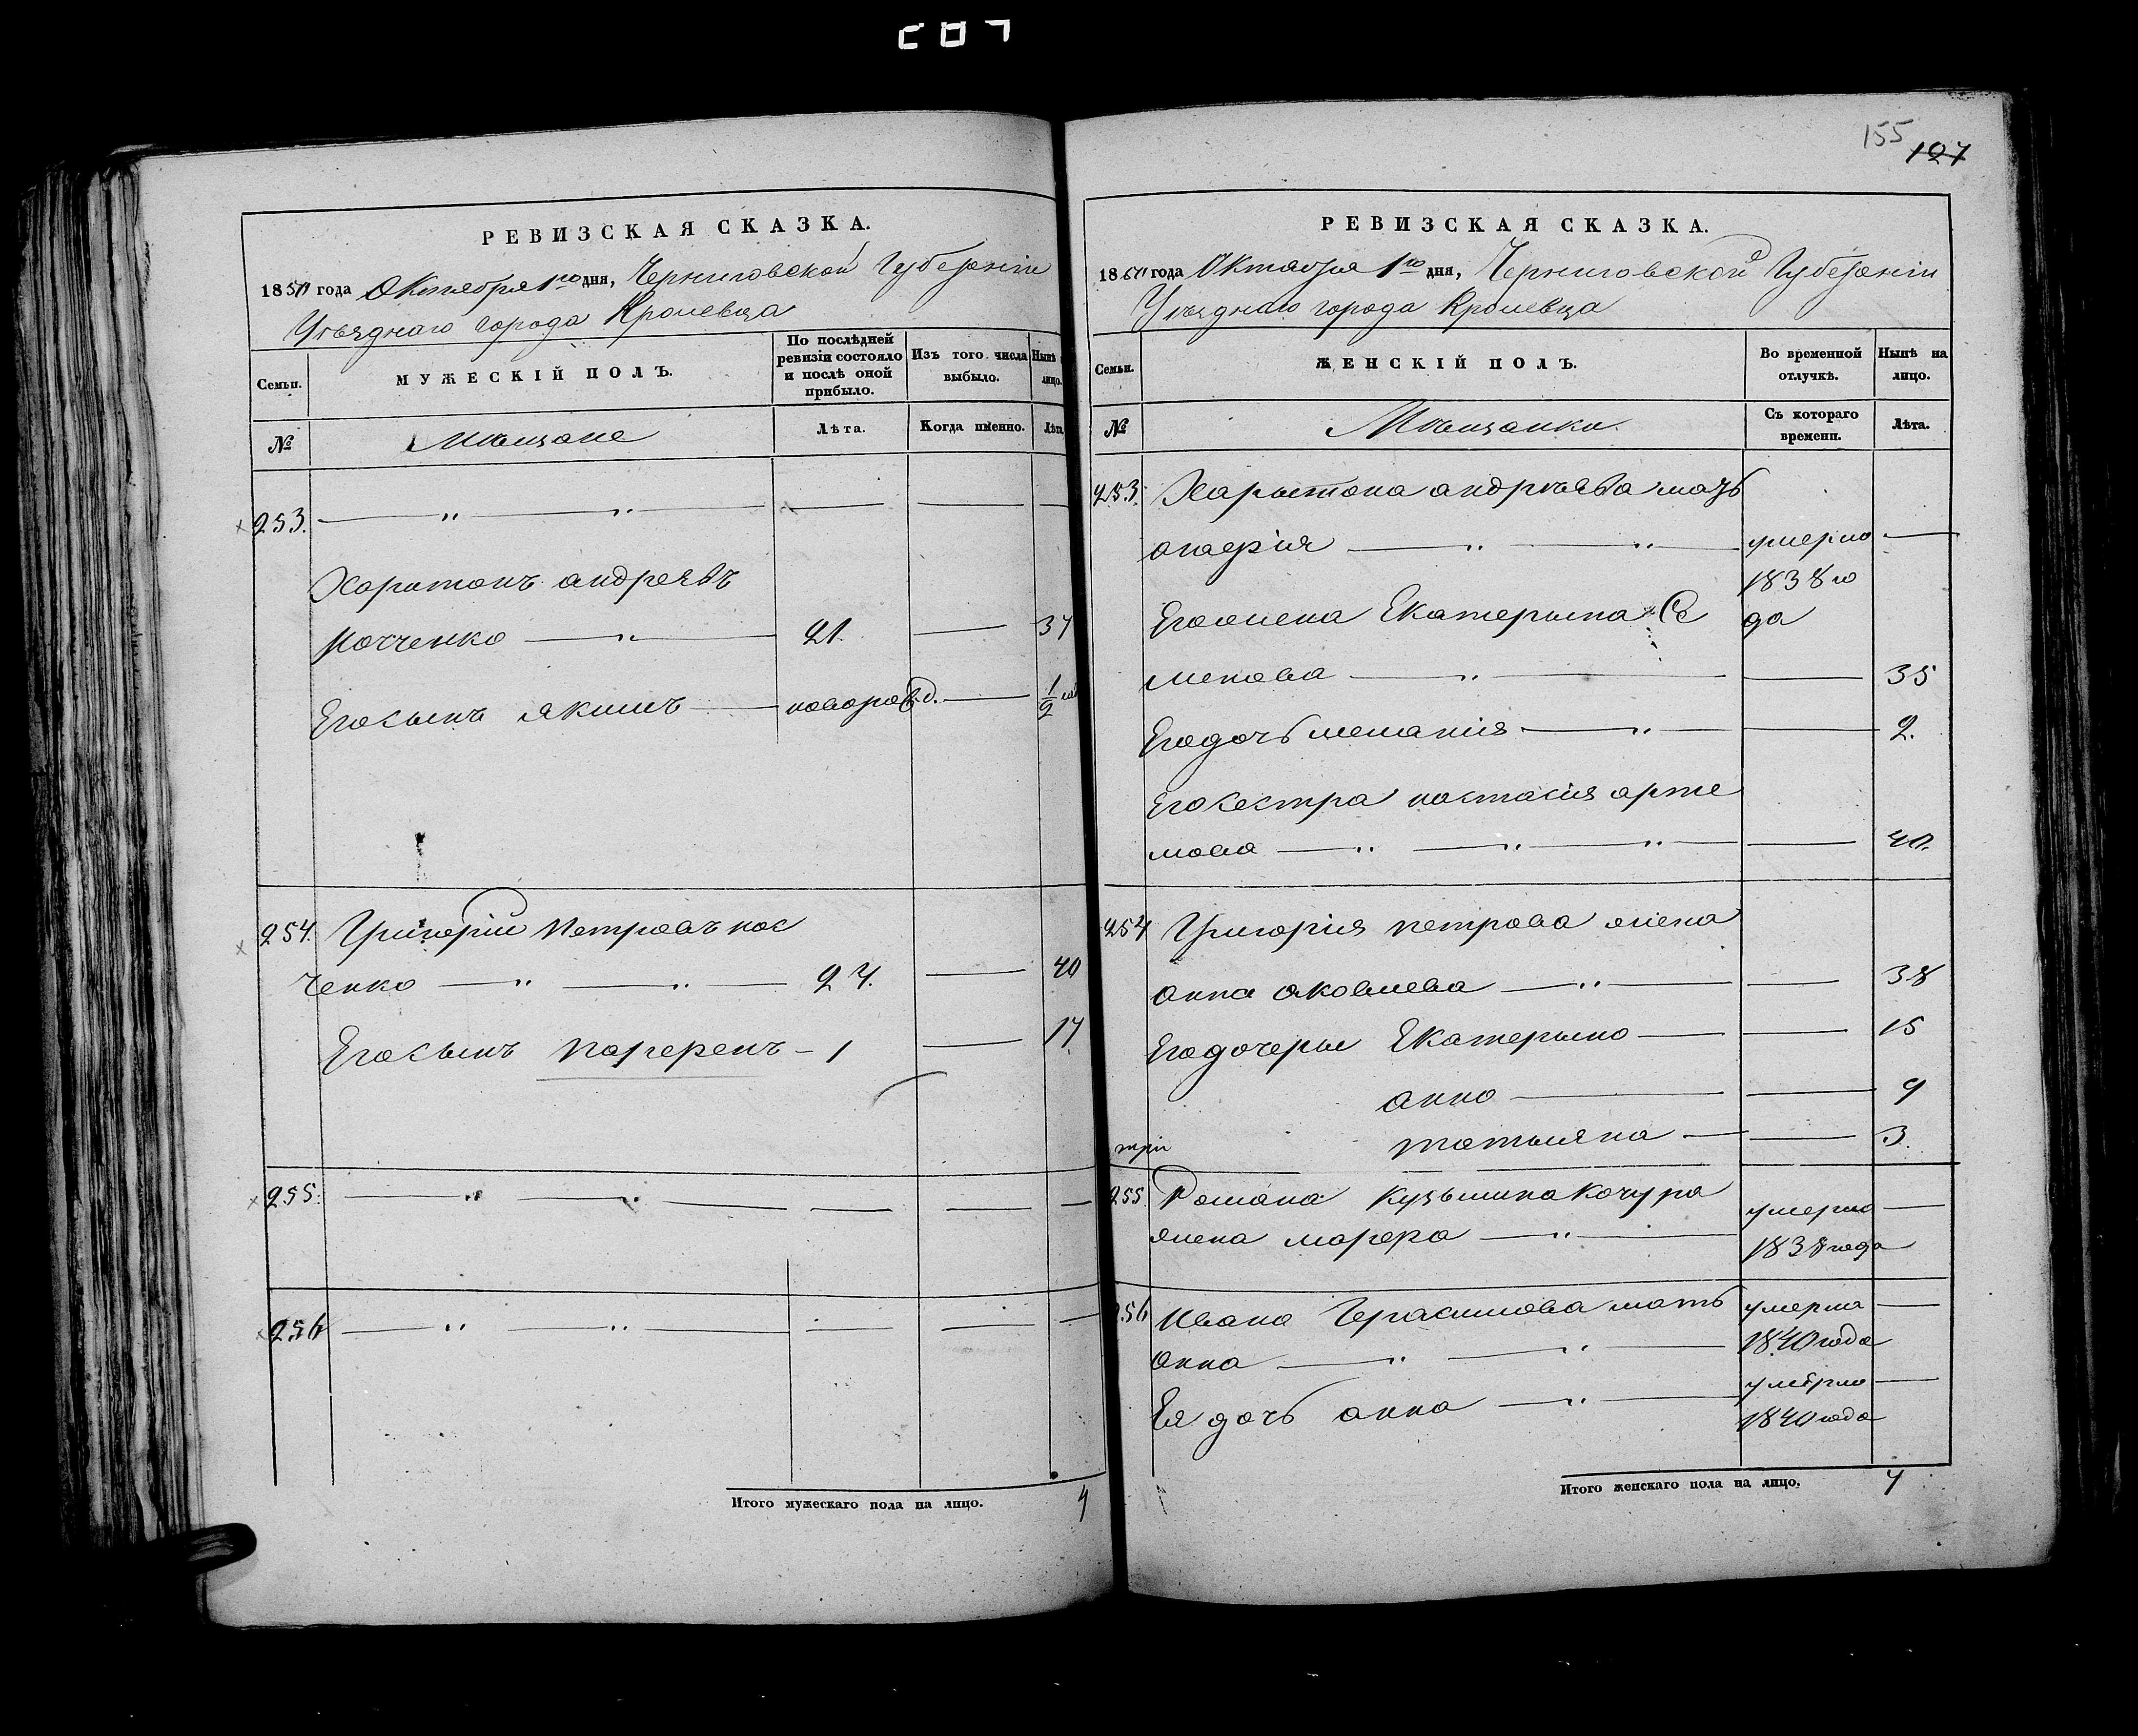 155
127
РЕВИЗСКАЯ СКАЗКА.
1850 года Октября 1го дня, Черниговской Губерніи
Уѣзднаго города Кролевца
Семьи.
МУЖЕСКІЙ ПОЛЪ.
По послѣдней ревизіи состояло и послѣ оной прибыло.
Изъ того числа выбыло.
Нынѣ
лицо.
№
Мѣщане
Лѣта.
Когда именно.
Лѣта
253. — „ — „ — — — —
Харитонъ андреевъ
— „ — 21. — 37
Его сынъ якимъ — новорожд. — 1/2
254. Григорій Петровъ кос
ченко — „ — „ — 24. — 40
Его сынъ парфенъ — 1 — 17
255. — „ — „ — — — —
256 — „ — „ — — — —
Итого мужескаго пола на лицо. 4
РЕВИЗСКАЯ СКАЗКА.
1850 года Октября 1го дня, Черниговской Губерніи
Уѣзднаго города Кролевца
Семьи.
ЖЕНСКІЙ ПОЛЪ.
Во временной отлучкѣ.
Нынѣ на лицо.
№
Мѣщанки
Съ котораго времени.
Лѣта.
253. Харытона андрѣева мать
агафія — „ — „ — умерла —
1838 го
Его жена Екатерына Се да
менова — „ — — 35
Его дочь меланія — „ — — 2.
Его сестра настасія арте
мова — „ — „ — „ — — 40.
254 Григорія петрова жена
анна яковлева — „ — — 38
Его дочеры Екатерына — — 15
анна — — 9
три татьяна — — 3.
255. Романа Кузьмина Кочура умерла —
жена марфа — „ — 1838 года
256 Ивана Герасимова мать умерла —
анна — „ — „ — 1840 года
умерла —
Ея дочь анна — „ — 1840 года
Итого женскаго пола на лицо. 7